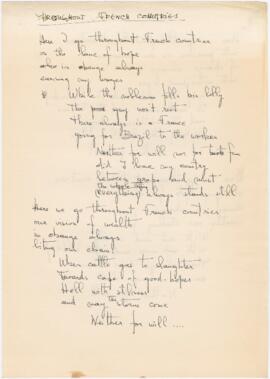 THROUGHOUT FRENCH COUNTRIES
Here I go throughout French countries
in the name of hope
who in absence always
evening my hunger
While the nobleman fills his belly
The poor guy won't rest
There always is a France
going for Brazil to the workers
Neither for will nor for
did I leave my country
between grapes and
everything always stands still
Here we go throughout French countries
our vision of wealth
in absence always
our chant
When cattle goes to slaughter
Towards cape of good-hopes
Hold with stillness
and may the storm come
Neither for will ....